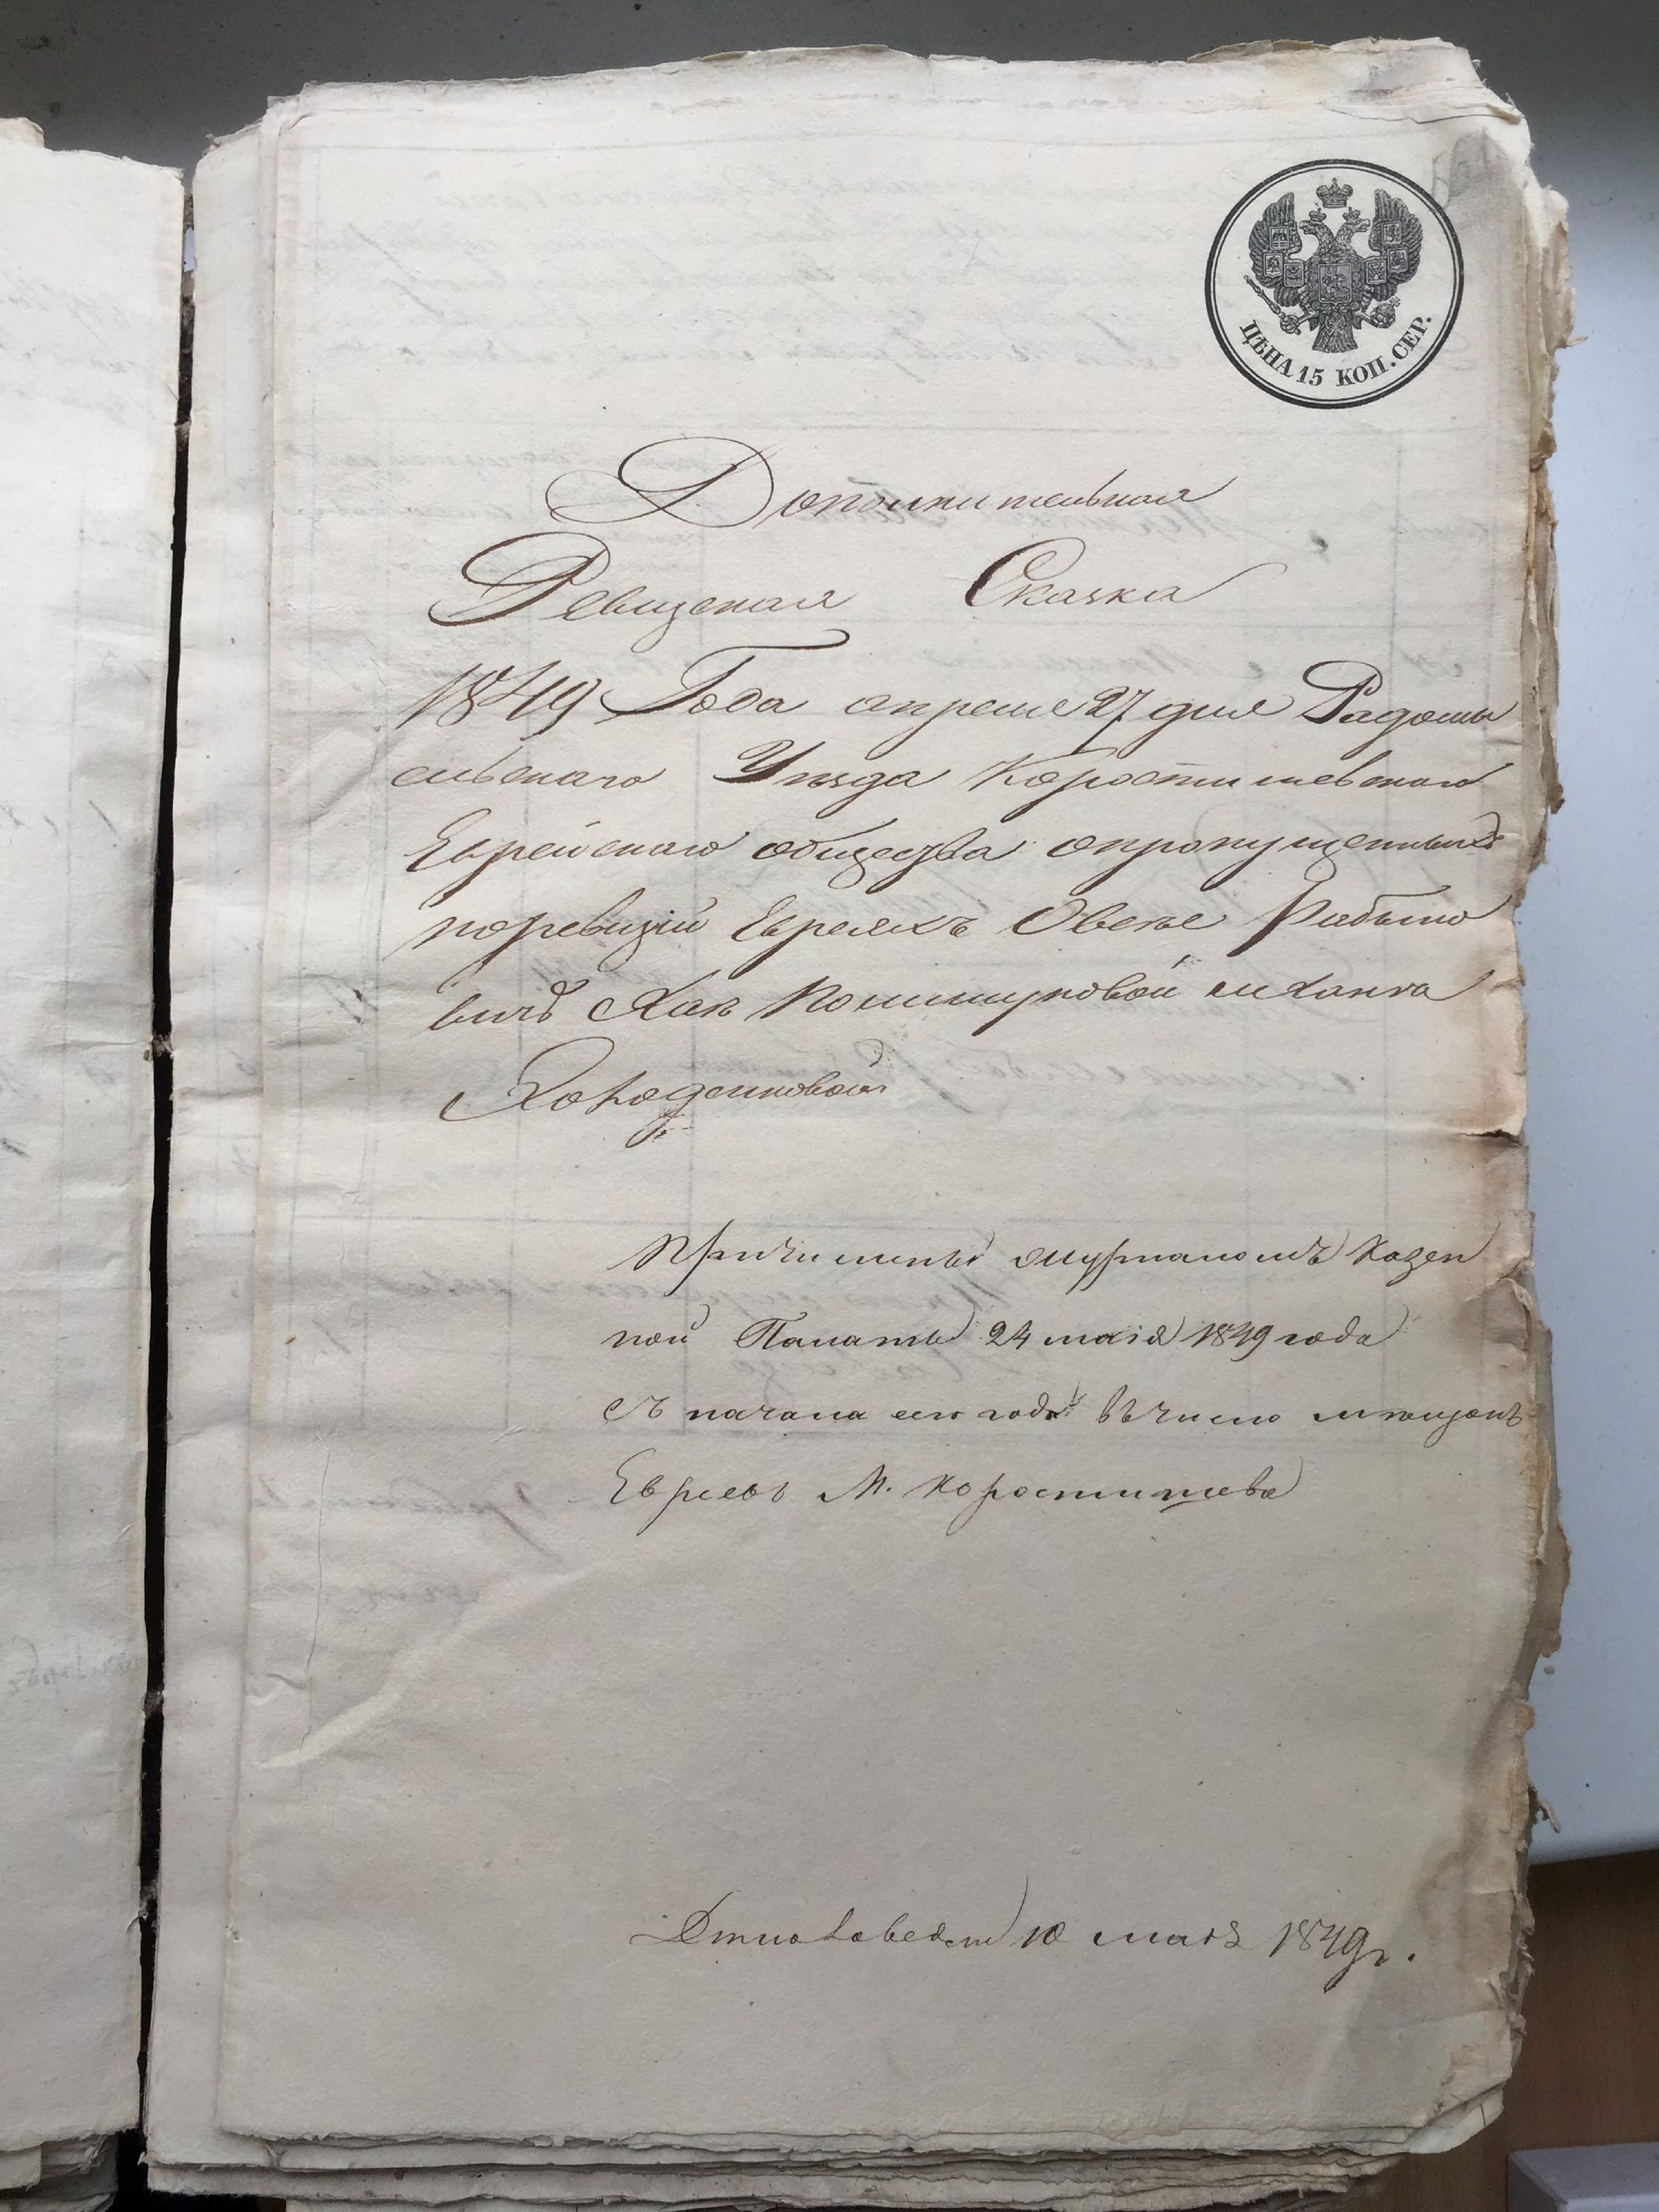 ЦѢНА 15 КОП. СЕР.
Дополнительная
Ревизская Сказка
1849 Года апреля 27 дня Радомы
сльскаго Уезда Коростишевскаго
Еврейскаго общества опропущенныхъ
поревизіи Евреяхъ Овсее Рабино
вичъ Хаи Полищуковой
Холоденковой
Причислены журналомъ Казен
ной Палаты 24 маія 1849 года
съ начала сего года въ число мещанъ
Евреевъ М. Коростишева
10 маія 1849 г.